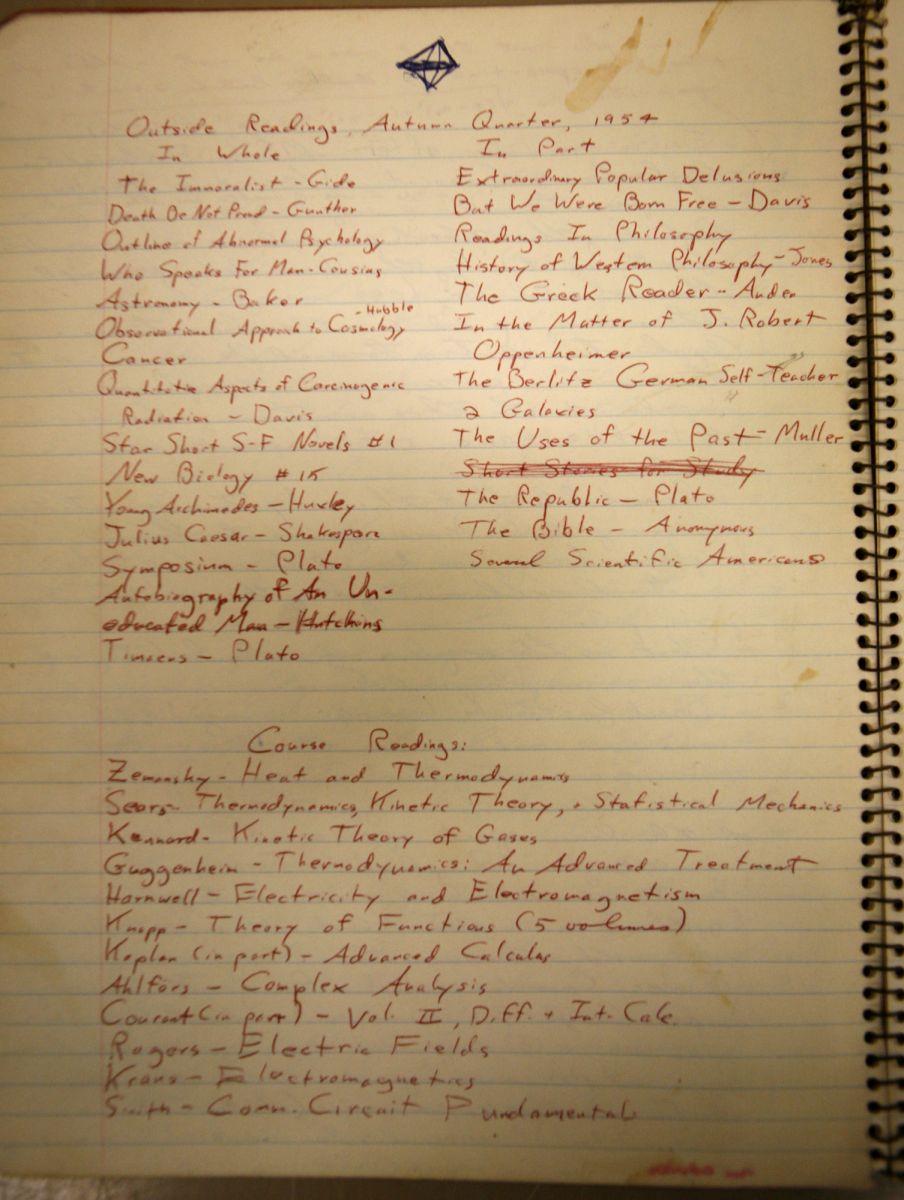 Outside Readings, Autumn Quarter, 1954
In Whole
The Immoralist - Gide
Death Be Not Proud - Gunther
Outline of Abnormal Psychology
Who Speaks For Man - Cousins
Astronomy - Baker
Observational Approach to Cosmology - Hubble
Cancer
Quantitative Aspects of Carcinogenic
Radiation - Davis
Star Short S-F Novels #1
New Biology #15
Young Archimedes - Huxley
Julius Caesar - Shakespare
Symposium - Plato
Autobiography of An Un-
educated Man - Hutchins
Timaeus - Plato
In Part
Extraordinary Popular Delusions
But We Were Born Free - Davis
Readings In Philosophy
History of Western Philosophy - Jones
The Greek Reader - Auden
In the Matter of J. Robert
Oppenheimer
The Berlitz German Self-Teacher
2 Galaxies
The Uses of the Past - Muller
Short Stories for Study
The Republic - Plato
The Bible - Anonymous
Several Scientific Americans
Course Readings:
Zemansky - Heat and Thermodynamics
Sears - Thermodynamics, Kinetic Theory, + Statistical Mechanics
Kennard - Kinetic Theory of Gases
Guggenheim - Thermodynamics: An Advanced Treatment
Harnwell - Electricity and Electromagnetism
Knopp - Theory of Functions (5 volumes)
Kaplan (in part) - Advanced Calculus
Ahlfors - Complex Analysis
Courant (in part) - Vol. II, Diff. + Int. Calc.
Rogers - Electric Fields
Kraus - Electromagnetics
Smith - Comm. Circuit Fundamentals